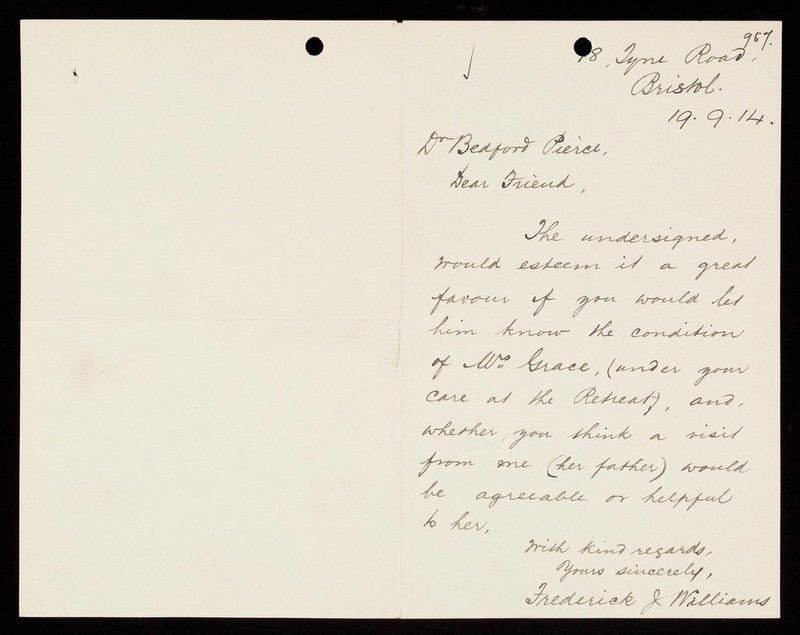 967.
78, Tyne Road,
Bristol.
19.9.14.
Dr Bedford Pierce,
Dear Friend,
The undersigned,
would esteem it a great
favour if you would let
him know the condition
of Mrs. Grace, (under your
care at the Retreat), and,
whether, you think a visit
from me (her father) would
be agreeable or helpful
to her,
With kind regards,
Yours sincerely,
Frederick J Williams